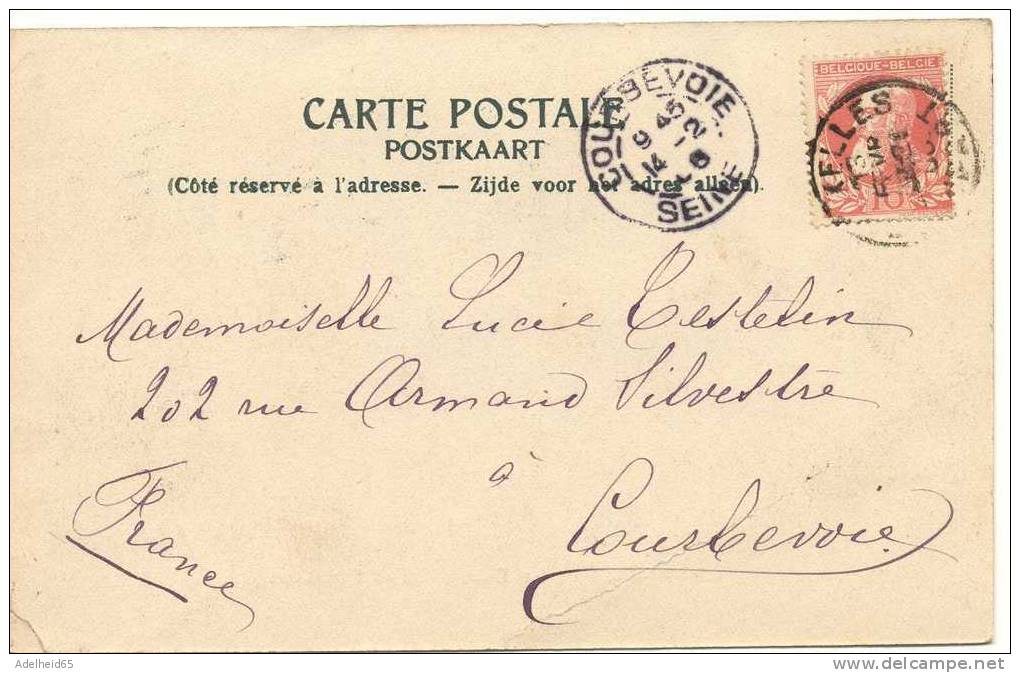 BELGIQUE-BELGIE
10
COURBEVOIE
9 45
14 2
SEINE
CARTE POSTALE
POSTKAART
(Côté réservé à l'adresse. — Zijde voor het adres alleen).
Mademoiselle Lucie Testelin
202 rue Armand Silvestre
à
Courbevoie
France
Adelheid65
delcampe.net